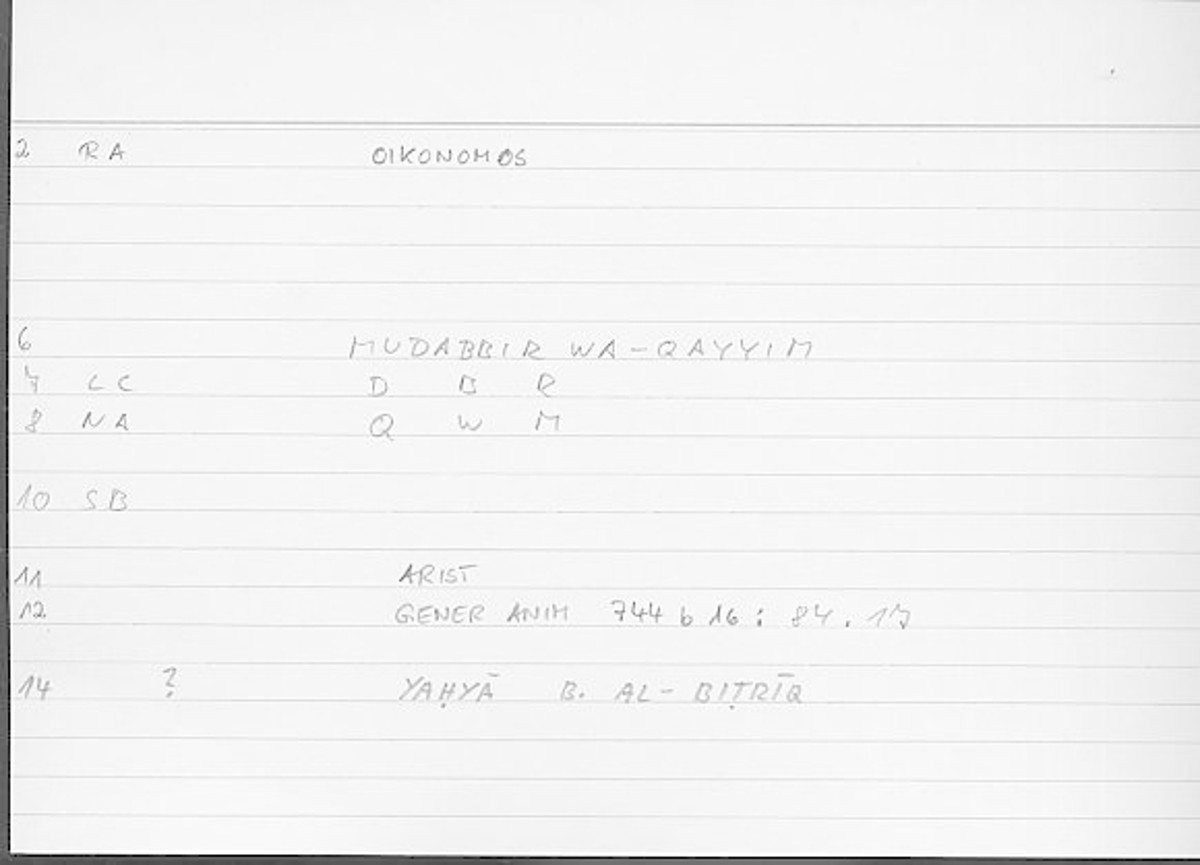 2 RA OIKONOMOS
6 MUDABBIR WA-QAYYIM
7 LC D B R
8 NA Q W M
10 SB
11 ARIST
12 GENER ANIM 744 b 16 : 84.17
14 ? YAḤYĀ B. AL-BIṬRĪQ